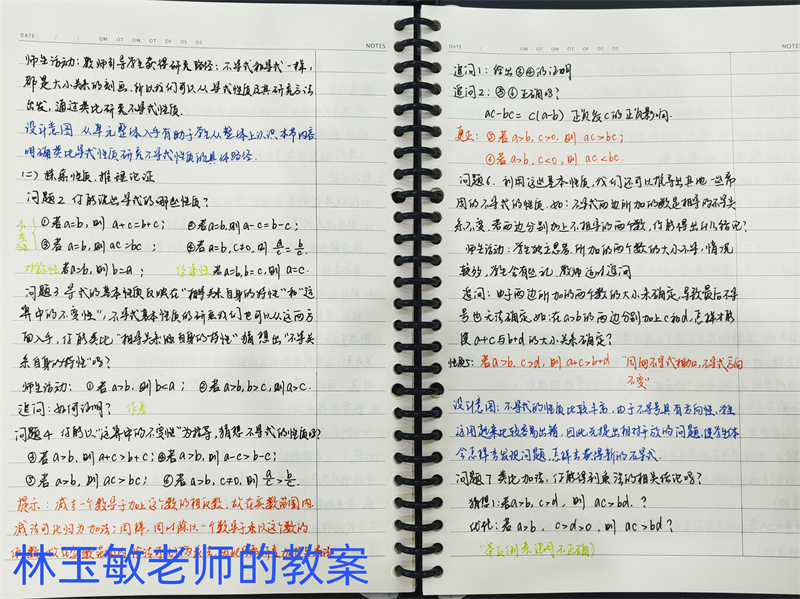 DATE / / OM OT OW OT OF OS OS
NOTES
师生活动：教师引导学生获得研究路径：不等式和等式一样，
都是大小关系的刻画，所以我们可以从等式性质及其研究方法
出发，通过类比研究不等式性质．
设计意图 从单元整体入手有助于学生从整体上认识本节内容
明确类比等式性质研究不等式性质的具体路径．
(二) 探索性质，推理论证
问题2 你能说出等式的哪些性质？
①若a=b，则 a+c=b+c； ②若a=b，则a-c=b-c；
③若a=b，则 ac=bc ； ④若a=b，c≠0，则 a/c=b/c．
对称性 若a=b，则b=a ； 传递性 若a=b，b=c，则 a=c．
问题3 等式的基本性质反映在“相等关系自身的特性”和“运
算中的不变性”，不等式基本性质的研究我们也可以从这两方
面入手，你能类比“相等关系的自身的特性”猜想出“不等关
系自身的特性”吗？
师生活动： ①若a>b，则b<a ； ②若a>b，b>c，则a>c．
追问：如何证明？ 作差
问题4 你能以“运算中的不变性”为指导，猜想不等式的性质吗？
①若a>b，则 a+c>b+c；②若a>b，则a-c>b-c；
③若a>b，则 ac>bc； ④若a>b，c≠0，则 a/c>b/c．
提示：减去一个数等于加上这个数的相反数，故在实数范围内
减法可化归为加法；同样，因为除以一个数等于乘以这个数的
林玉敏老师的教案
DATE / / OM OT OW OT OF OS OS
NOTES
追问1：给出③④的证明
追问2：③④正确吗？
ac-bc= c(a-b) 正负受c的正负影响．
更正：③若a>b，c>0，则 ac>bc；
④若a>b，c<0，则 ac<bc．
问题6．利用这些基本性质，我们还可以推导出其他一些常
用的不等式的性质．如：不等式两边所加的数是相等的不等关
系不变．若两边分别加上不相等的两个数，你能得出什么结论？
师生活动：学生独立思考，所加的两个数的大小不等，情况
较多，学生会有些乱，教师适时追问
追问：由于两边所加的两个数的大小未确定，导致最后不等
号也无法确定，如：在a>b的两边分别加上c和d，怎样才能
使a+c与b+d的大小关系确定？
性质5： 若a>b，c>d，则 a+c>b+d “同向不等式相加，不等式方向
不变”
设计意图：不等式的性质比较丰富，由于不等号具有方向性，在
运用起来比较容易出错，因此先提出相对开放的问题，使学生体
会怎样去发现问题，怎样去获得新的不等式．
问题7 类比加法，你能得到乘法的相关结论吗？
猜想1：若a>b，c>d，则 ac>bd．？
优化：若a>b， c>d>0，则 ac>bd？